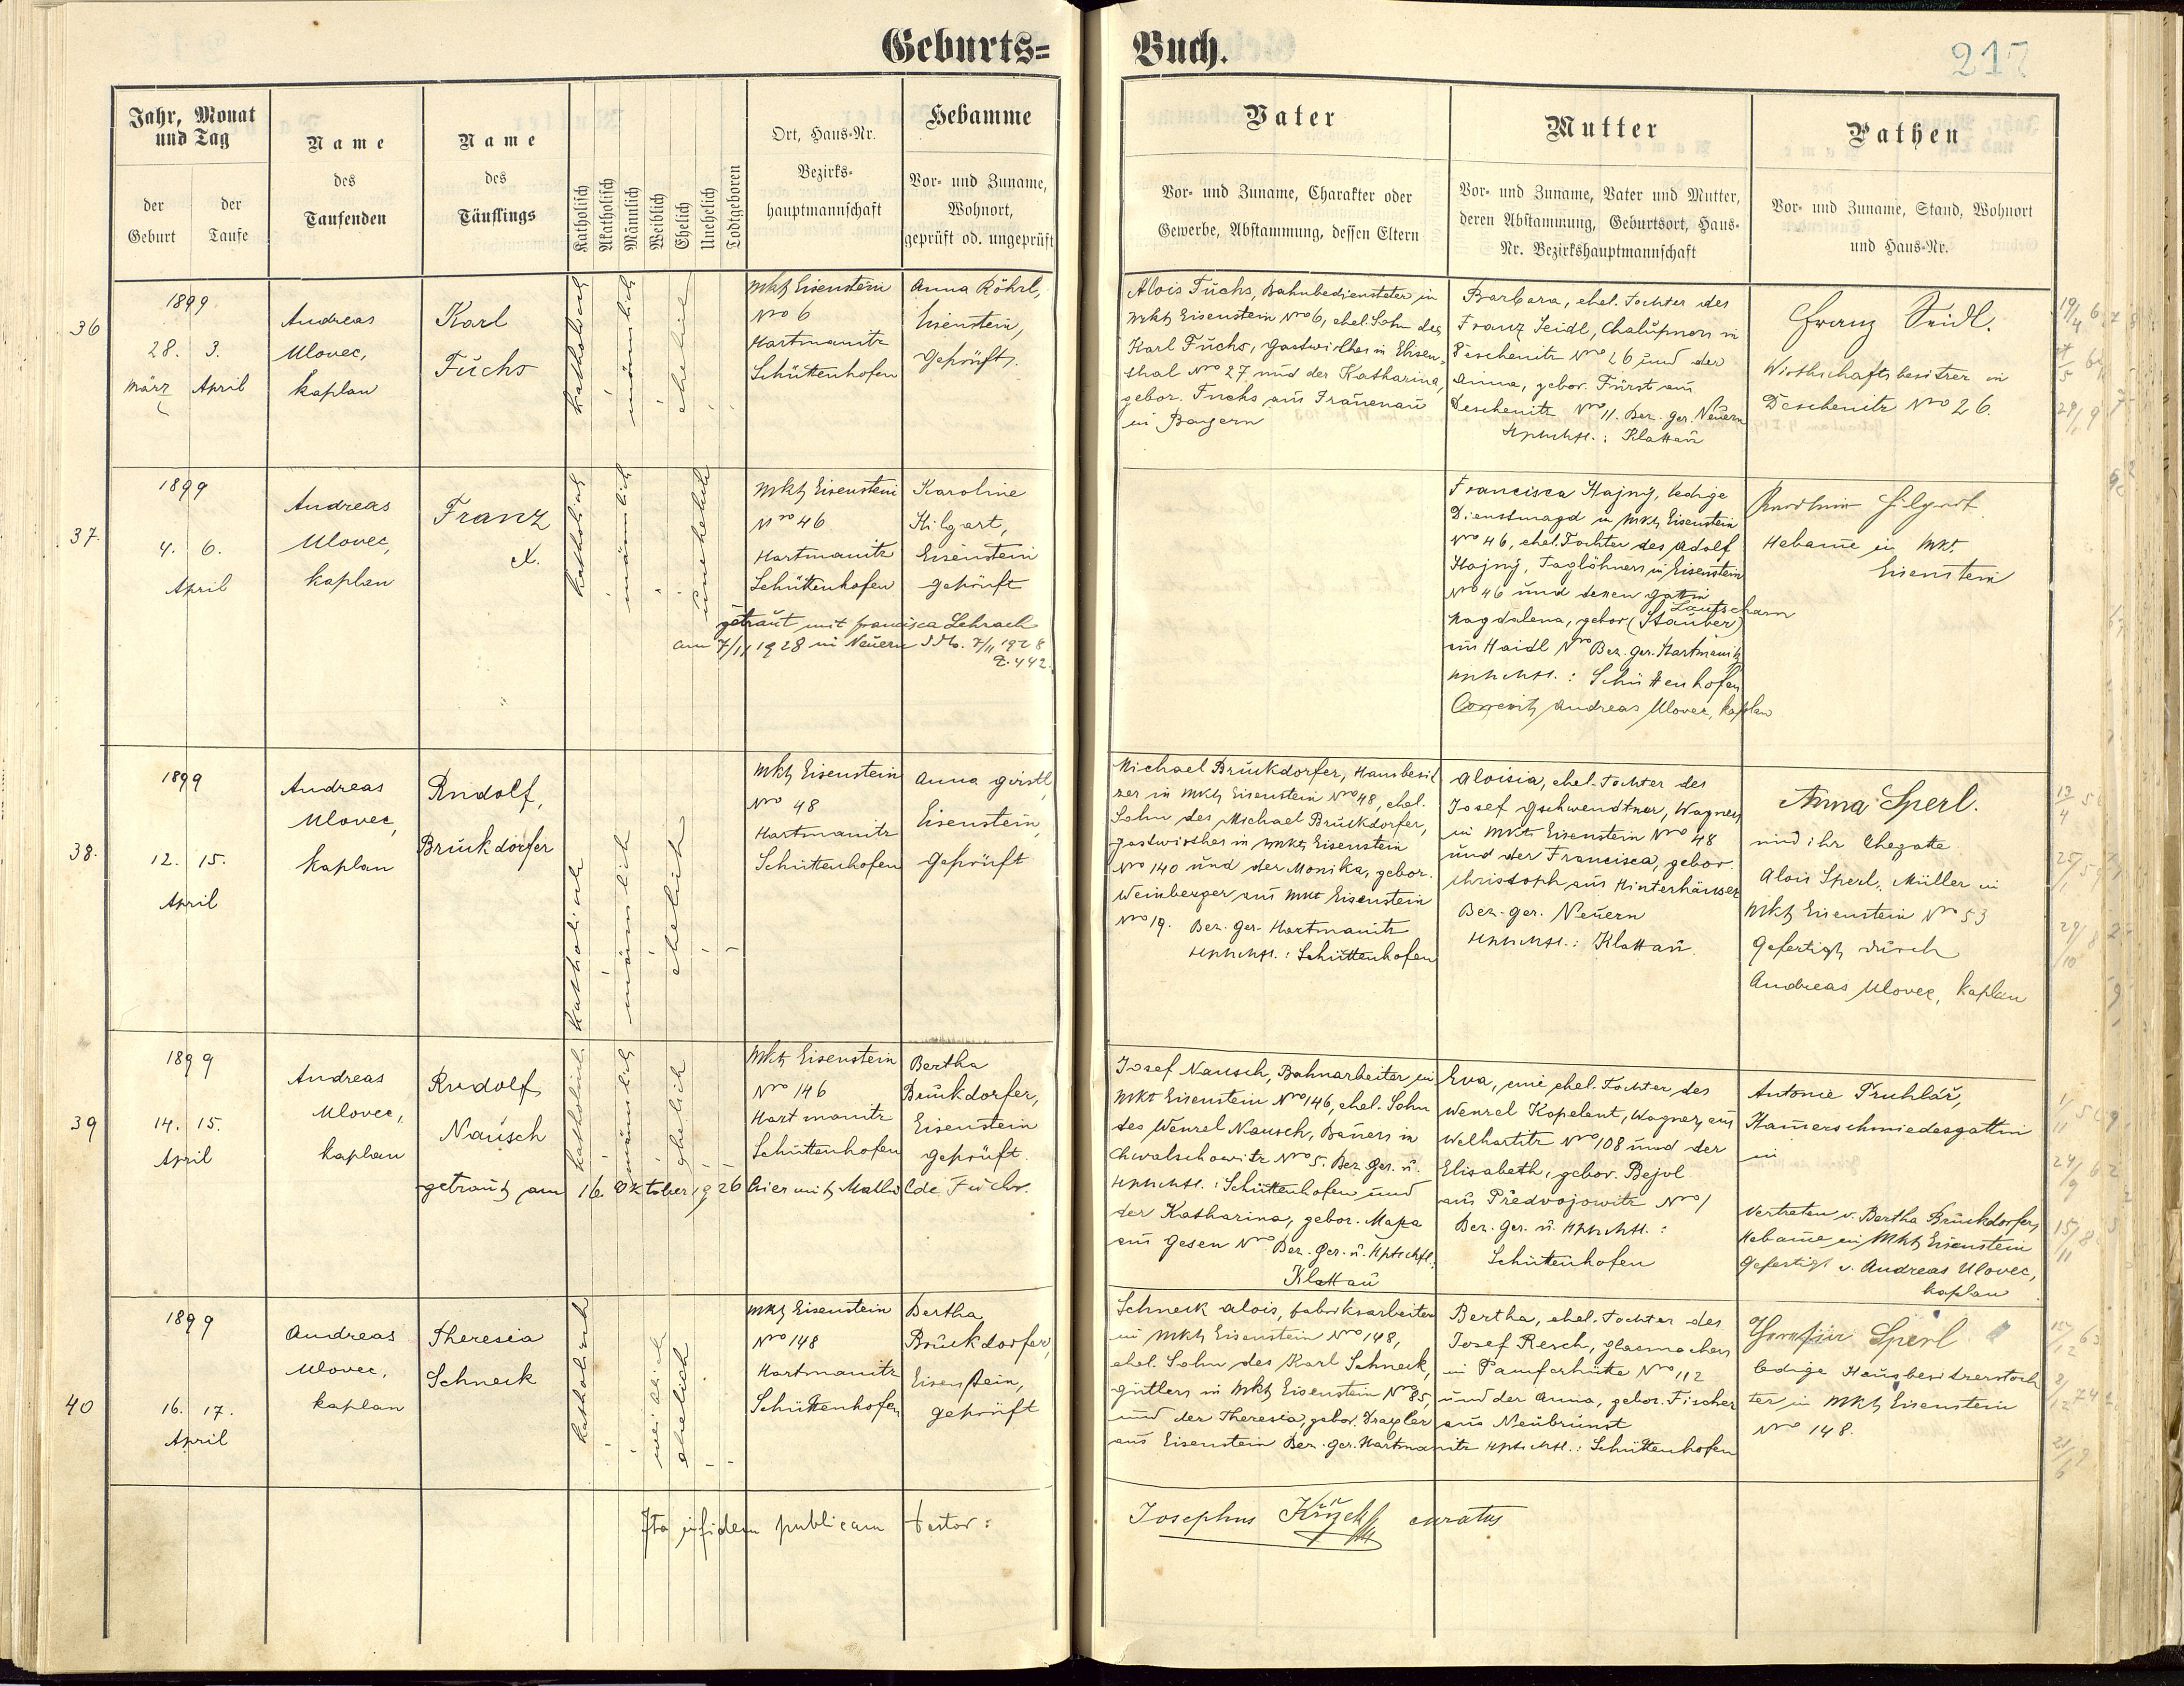 Geburts=
Buch.
217
Jahr, Monat
und Tag
der
Geburt
der
Taufe
Name
des
Taufenden
Name
des
Täuflings
Katholisch
Akatholisch
Männlich
Weiblich
Ehelich
Unehelich
Todtgeboren
Ort, Haus-Nr.
Bezirks-
hauptmannschaft
Hebamme
Vor- und Zuname,
Wohnort,
geprüft od. ungeprüft
Vater
Vor- und Zuname, Charakter oder
Gewerbe, Abstammung, dessen Eltern
Mutter
Vor- und Zuname, Vater und Mutter,
deren Abstammung, Geburtsort, Haus-
Nr. Bezirkshauptmannschaft
Pathen
Vor- und Zuname, Stand, Wohnort
und Haus-Nr.
36
1899
28. 3.
März April
Andreas
Ulovec,
kaplan
Karl
Fuchs
katholisch
männlich
ehelich
Mkt Eisenstein
Nro 6
Hartmanitz
Schüttenhofen
Anna Röhrl,
Eisenstein,
Geprüft.
Alois Fuchs, Bahnbediensteter in
Mkt Eisenstein Nro 6, ehel. Sohn des
Karl Fuchs, Gastwirthes in Elisen-
thal Nro 27 und der Katharina,
gebor. Fuchs aus Frauenau
in Bayern
Barbara, ehel. Tochter des
Franz Seidl, Chalupners in
Deschenitz Nro 26 und der
Anna, gebor. Fürst aus
Deschenitz Nro 11. Bez. ger. Neuern
Hptmschft.: Klattau
Franz Seidl.
Wirthschaftsbesitzer in
Deschenitz Nro 26.
37.
1899
4. 6.
April
Andreas
Ulovec,
kaplan
Franz
X.
katholisch
männlich
unehelich
Mkt Eisenstein
Nro 46
Hartmanitz
Schüttenhofen
Karoline
Hilgart,
Eisenstein
geprüft
getraut mit Francisca Lehrach
am 7/11 1928 in Neuern d. Mo. 7/11 1928
Z. 442.
Francisca Hajný, ledige
Dienstmagd in Mkt Eisenstein
Nro 46, ehel. Tochter des Adolf
Hajný, Taglöhners in Eisenstein
Nro 46 und dessen Gattin
Lautscham
Magdalena, gebor (Stauber)
aus Haidl Nro Bez. ger. Hartmanitz
Hptmschft.: Schüttenhofen
Correxit Andreas Ulovec, kaplan
Karolina Hilgart
Hebamme in Mkt.
Eisenstein
38.
1899
12. 15.
April
Andreas
Ulovec,
kaplan
Rudolf,
Bruckdorfer
katholisch
männlich
ehelich
Mkt Eisenstein
Nro 48
Hartmanitz
Schüttenhofen
Anna Gerstl,
Eisenstein,
geprüft
Michael Bruckdorfer, Hausbesit
zer in Mkt Eisenstein Nro 48, ehel.
Sohn des Michael Bruckdorfer,
gastwirthes in Mkt Eisenstein
Nro 140 und der Monika, gebor.
Weinberger aus Mkt Eisenstein
Nro 19. Bez. ger. Hartmanitz
Hptmschft.: Schüttenhofen
Aloisia, ehel. Tochter des
Josef Gschwendtner, Wagners
in Mkt Eisenstein Nro 48
und der Francisca, gebor.
Christoph aus Hinterhäuser
Bez. ger. Neuern
Hptmschft.: Klattau.
Anna Sperl.
und ihr Ehegatte
Alois Sperl, Müller in
Mkt Eisenstein Nro 53
Gefertigt durch
Andreas Ulovec, kaplan
39
1899
14. 15.
April
Andreas
Ulovec,
kaplan
Rudolf
Nausch
katholisch
männlich
ehelich
Mkt Eisenstein
Nro 146
Hartmanitz
Schüttenhofen
Bertha
Bruckdorfer,
Eisenstein
geprüft.
getraut am 16. Oktober 1926 hier mit Mathilde Fuchs.
Josef Nausch, Bahnarbeiter in
Mkt Eisenstein Nro 146, ehel. Sohn
des Wenzel Nausch, Bauers in
Chwalschowitz Nro 5. Bez. ger. u.
Hptmschft.: Schüttenhofen und
der Katharina, gebor. Mapa
aus Gesen Nro Bez. ger. u. Hptschft.:
Klattau
Eva, eine ehel. Tochter des
Wenzel Kopelent, Wagners aus
Welhartitz Nro 108 und der
Elisabeth, gebor. Bejvl
aus Předvojowitz Nro 1
Bez. ger. u. Hptmschft.:
Schüttenhofen
Antonie Truhlář,
Hammerschmiedesgattin
in
Vertreten v. Bertha Bruckdorfer,
Hebamme in Mkt Eisenstein
Gefertigt v. Andreas Ulovec,
kaplan
40
1899
16. 17.
April
Andreas
Ulovec,
kaplan
Theresia
Schneck
katholisch
weiblich
ehelich
Mkt Eisenstein
Nro 148
Hartmanitz
Schüttenhofen
Bertha
Bruckdorfer,
Eisenstein,
geprüft
Schneck Alois, fabriksarbeiter
in Mkt Eisenstein Nro 148,
ehel. Sohn des Karl Schneck,
gütlers in Mkt Eisenstein Nro 85,
und der Theresia, gebor. Draxler
aus Eisenstein Bez. ger. Hartmanitz Hptschft.: Schüttenhofen
Bertha, ehel. Tochter des
Josef Resch, glasmachers
in Pamferhütte Nro 112
und der Anna, gebor. Fischer
aus Neubrunst
Sperl
ledige Hausbesitzerstoch
ter in Mkt Eisenstein
Nro 148.
Ita in fidem publicam testor:
Josephus curatus